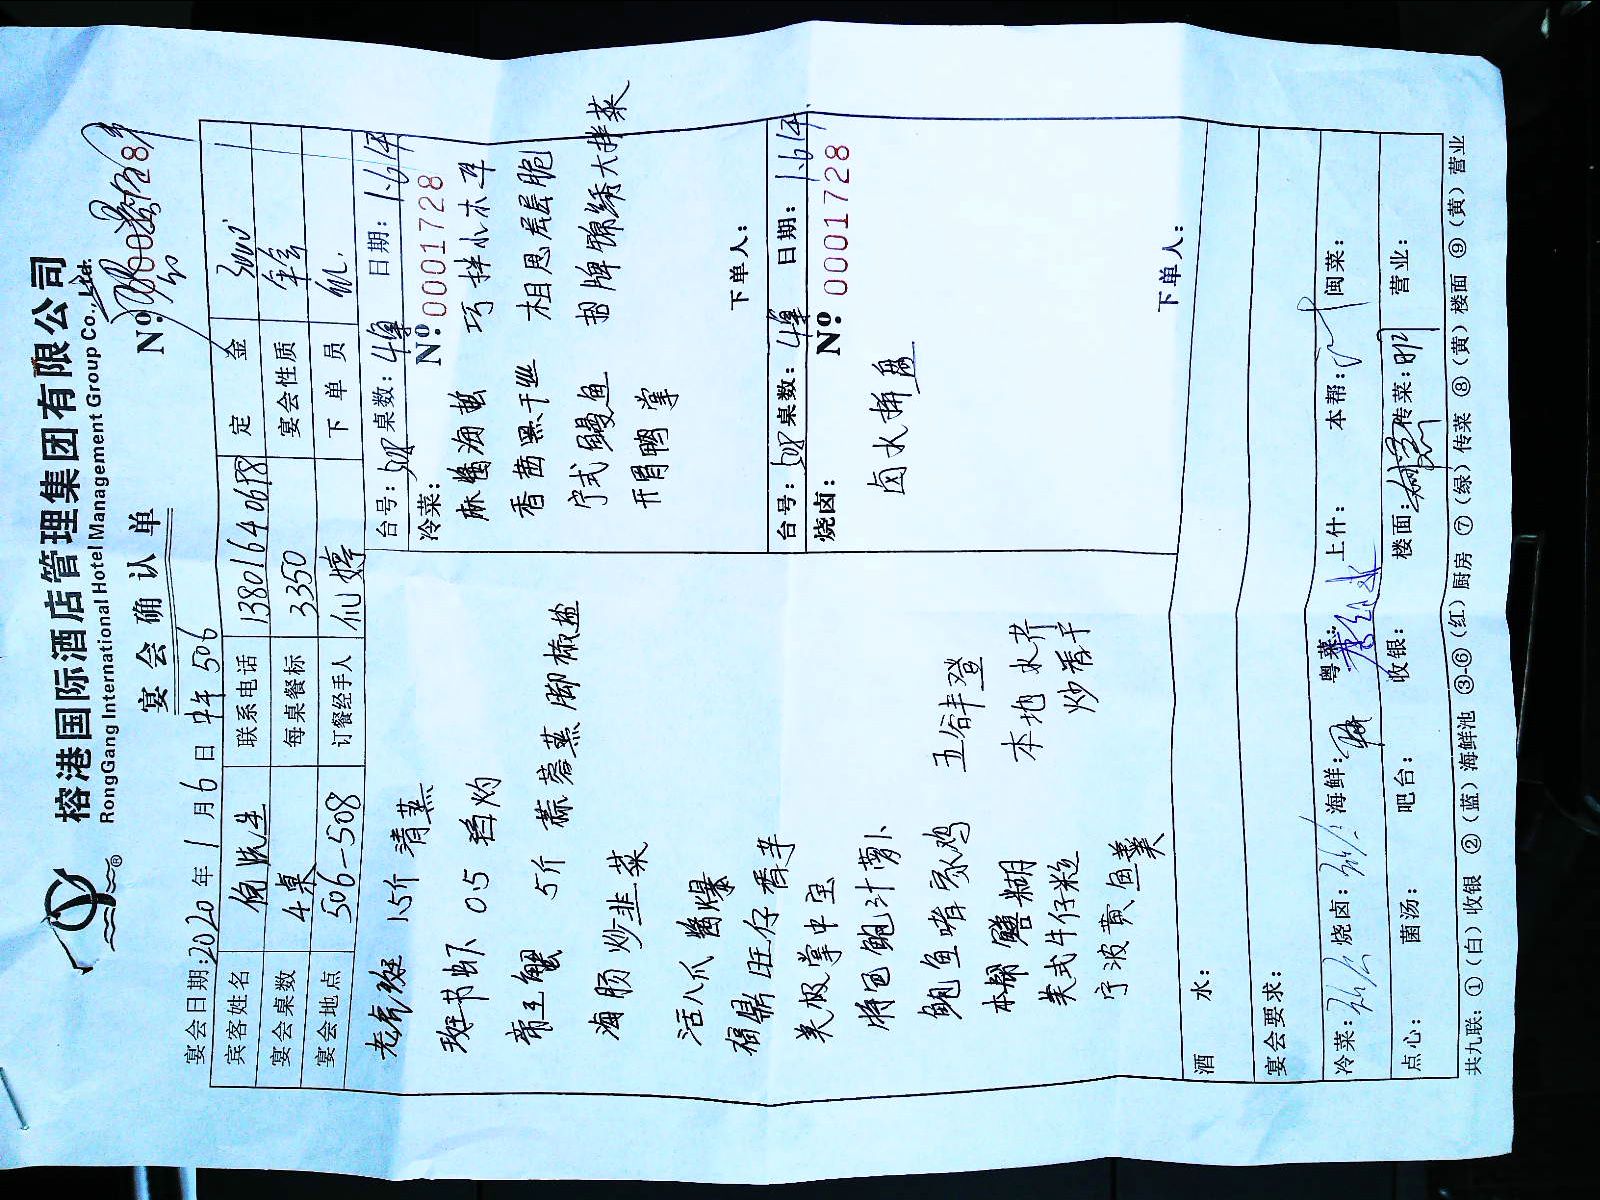 榕港国际酒店管理集团有限公司
RongGang International Hotel Management Group Co., Ltd.
宴会确认单
Nº: 0001728
宴会日期: 2020年1月6日 中午 506
宾客姓名 倪先生 联系电话 13801640678 定金 3000
宴会桌数 4桌 每桌餐标 3350 宴会性质 年会
宴会地点 506-508 订餐经手人 仙婷 下单员
老虎斑 1.5斤 清蒸
斑节虾 0.5 白灼
帝王蟹 5斤 蒜蓉蒸 脚椒盐
海肠炒韭菜
活八爪 酱爆
福鼎旺仔香芋
美极掌中宝
将巴鲍汁萝卜
鲍鱼啫家鸡
本帮鳝糊
美式牛仔粒
宁波黄鱼羹
五谷丰登
本地水芹
炒香干
台号: 508 桌数: 4桌 日期: 1.6中
冷菜: Nº: 0001728
麻酱海蜇 巧拌小木耳
香茜黑干丝 相思层层脆
宁式鳗鱼 招牌锦绣大拌菜
开胃鸭掌
下单人:
台号: 508 桌数: 4桌 日期: 1.6中
烧卤: Nº: 0001728
卤水拼盘
下单人:
酒水:
宴会要求:
冷菜: 烧卤: 海鲜: 粤菜: 上什: 本帮: 闽菜:
点心: 菌汤: 吧台: 收银: 楼面: 传菜: 营业:
共九联: ①(白)收银 ②(蓝)海鲜池 ③-⑥(红)厨房 ⑦(绿)传菜 ⑧(黄)楼面 ⑨(黄)营业